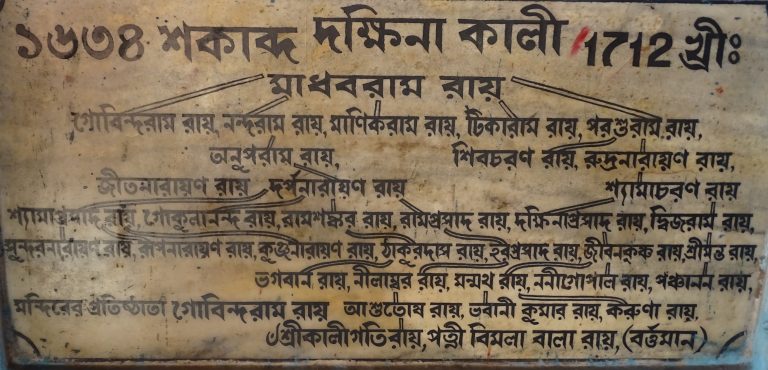 ১৬৩৪ শকাব্দ দক্ষিনা কালী 1712 খ্রীঃ
মাধবরাম রায়
গোবিন্দরাম রায়, নন্দরাম রায়, মানিকরাম রায়, টিকারাম রায়, পরশুরাম রায়,
অনুপরাম রায়, শিবচরণ রায়, রুদ্রনারায়ণ রায়,
জীতনারায়ণ রায় দর্পনারায়ণ রায় শ্যামাচরণ রায়
শ্যামাপ্রসাদ রায়, গোকুলানন্দ রায়, রামশঙ্কর রায়, রামপ্রসাদ রায়, দক্ষিনাপ্রসাদ রায়, দ্বিজরাম রায়,
সুন্দরনারায়ণ রায়, রূপনারায়ণ রায়, কুঞ্জনারায়ণ রায়, ঠাকুরদাস রায়, হরপ্রসাদ রায়, জীবনকৃষ্ণ রায়, শ্রীমন্ত রায়,
ভগবান রায়, নীলাম্বর রায়, মন্মথ রায়, ননীগোপাল রায়, পঞ্চানন রায়,
মন্দিরের প্রতিষ্ঠাতা গোবিন্দরাম রায় আশুতোষ রায়, ভবানী কুমার রায়, করুণা রায়,
৺শ্রীকালীগতি রায়, পত্নী বিমলা বালা রায়, (বর্ত্তমান)